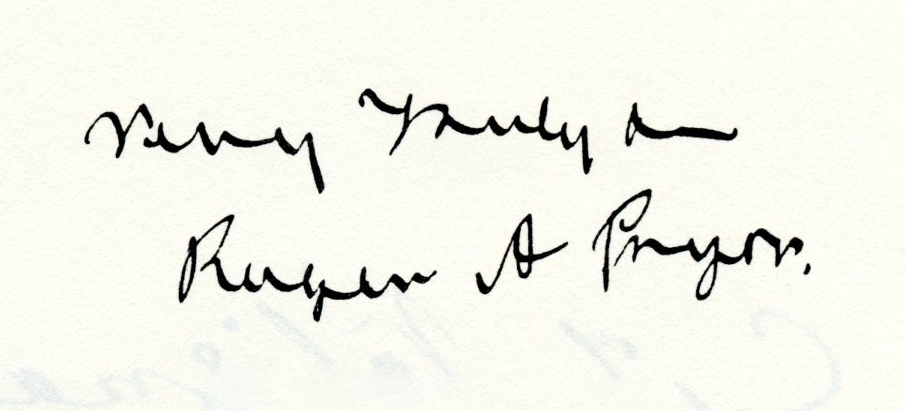 Very Truly &c
Roger A Pryor.